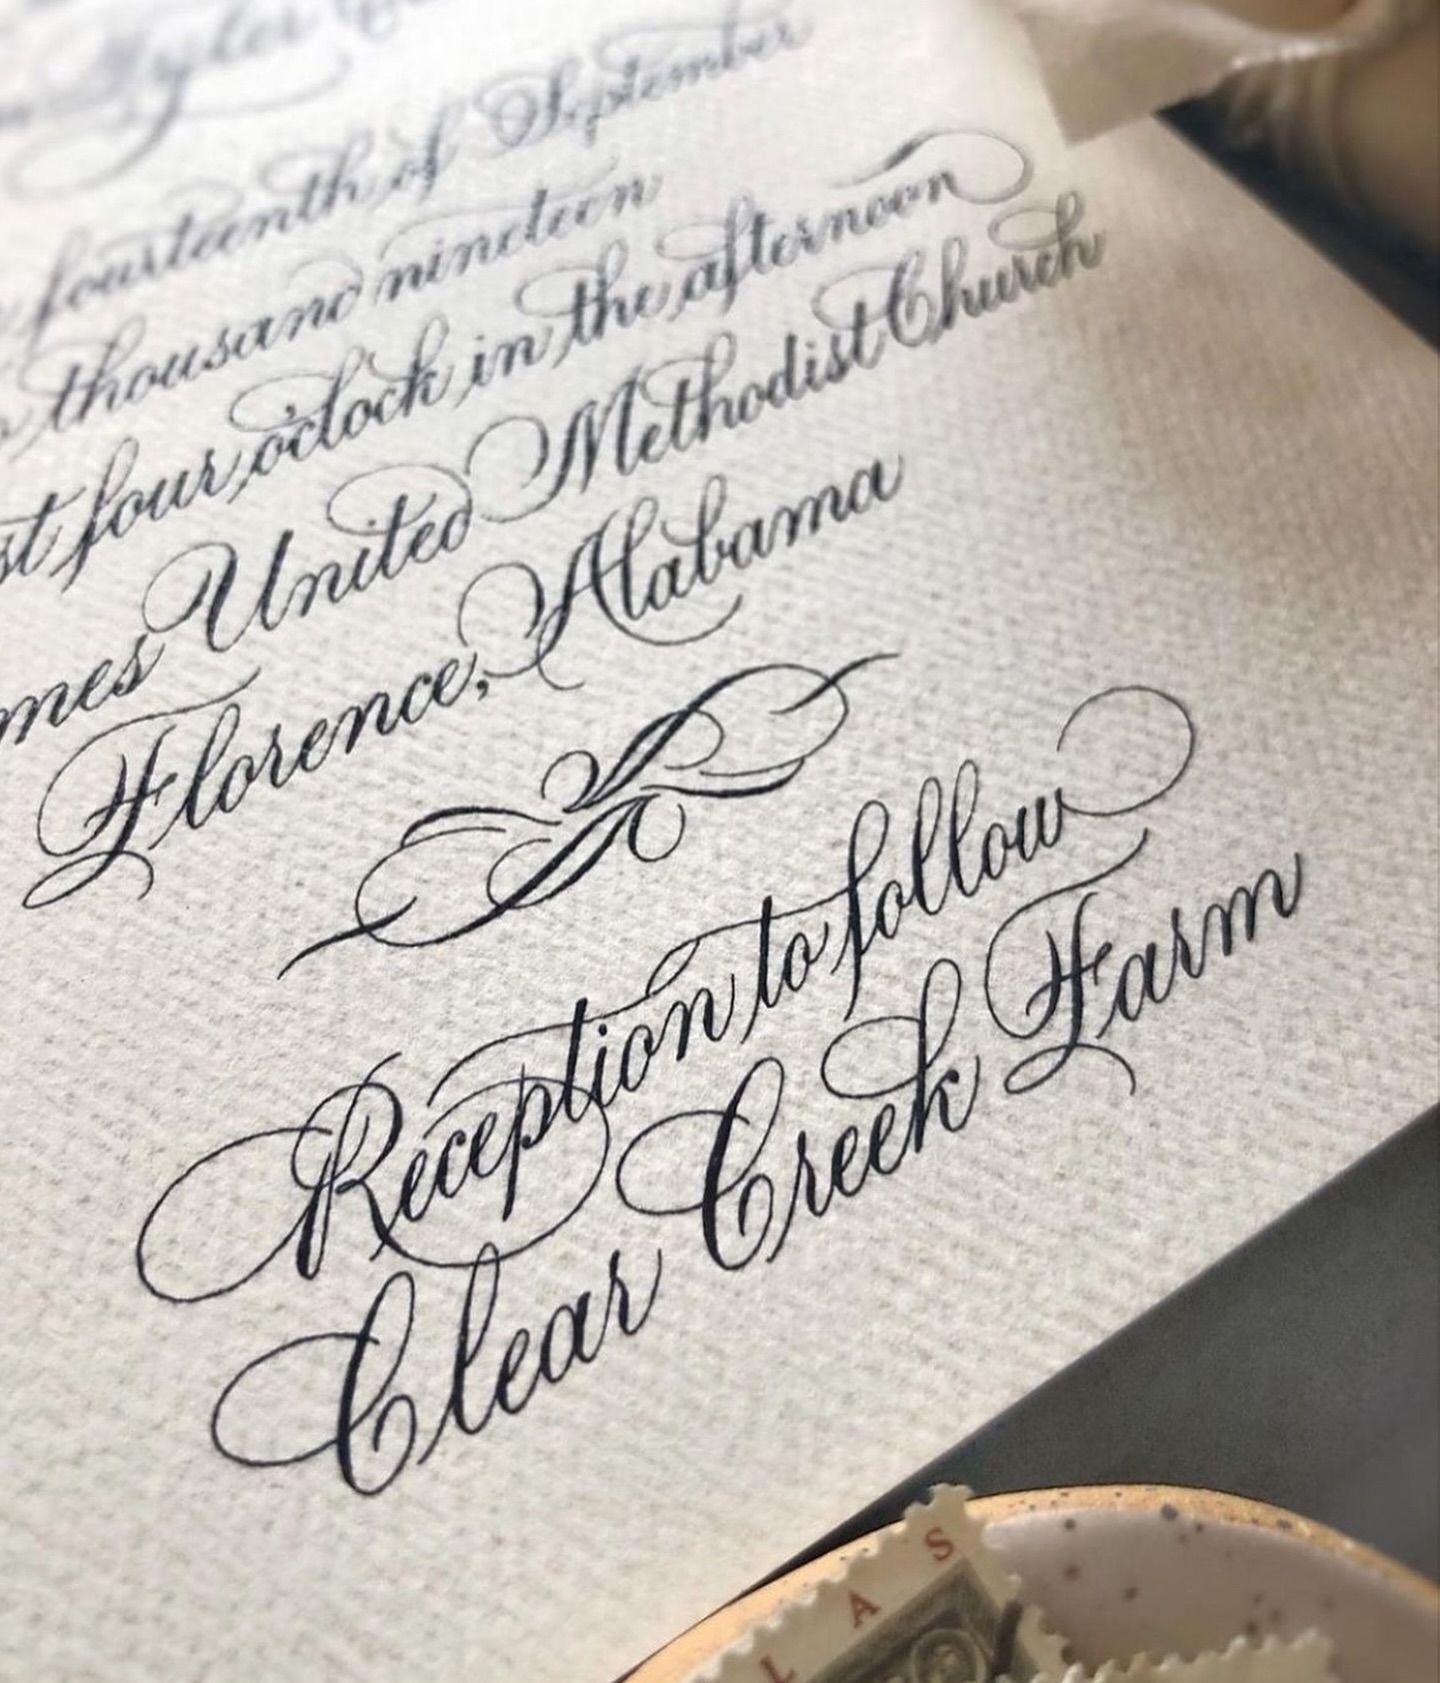 Tyler
fourteenth of September
thousand nineteen
four o'clock in the afternoon
United Methodist Church
Florence, Alabama
Reception to follow
Clear Creek Farm
L A S